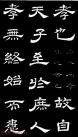 孝也　故自
天子至於庶人
孝無終始而患